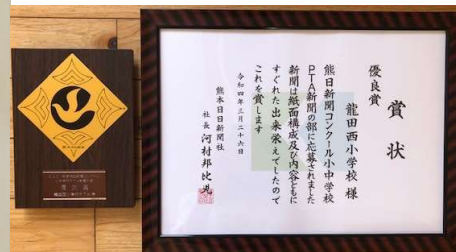 賞状
優良賞
龍田西小学校 様
熊日新聞コンクール小中学校
PTA新聞の部に応募されました
新聞は紙面構成及び内容ともに
すぐれた出来栄えでしたので
これを賞します
令和四年三月二十六日
熊本日日新聞社
社長 河村邦比児